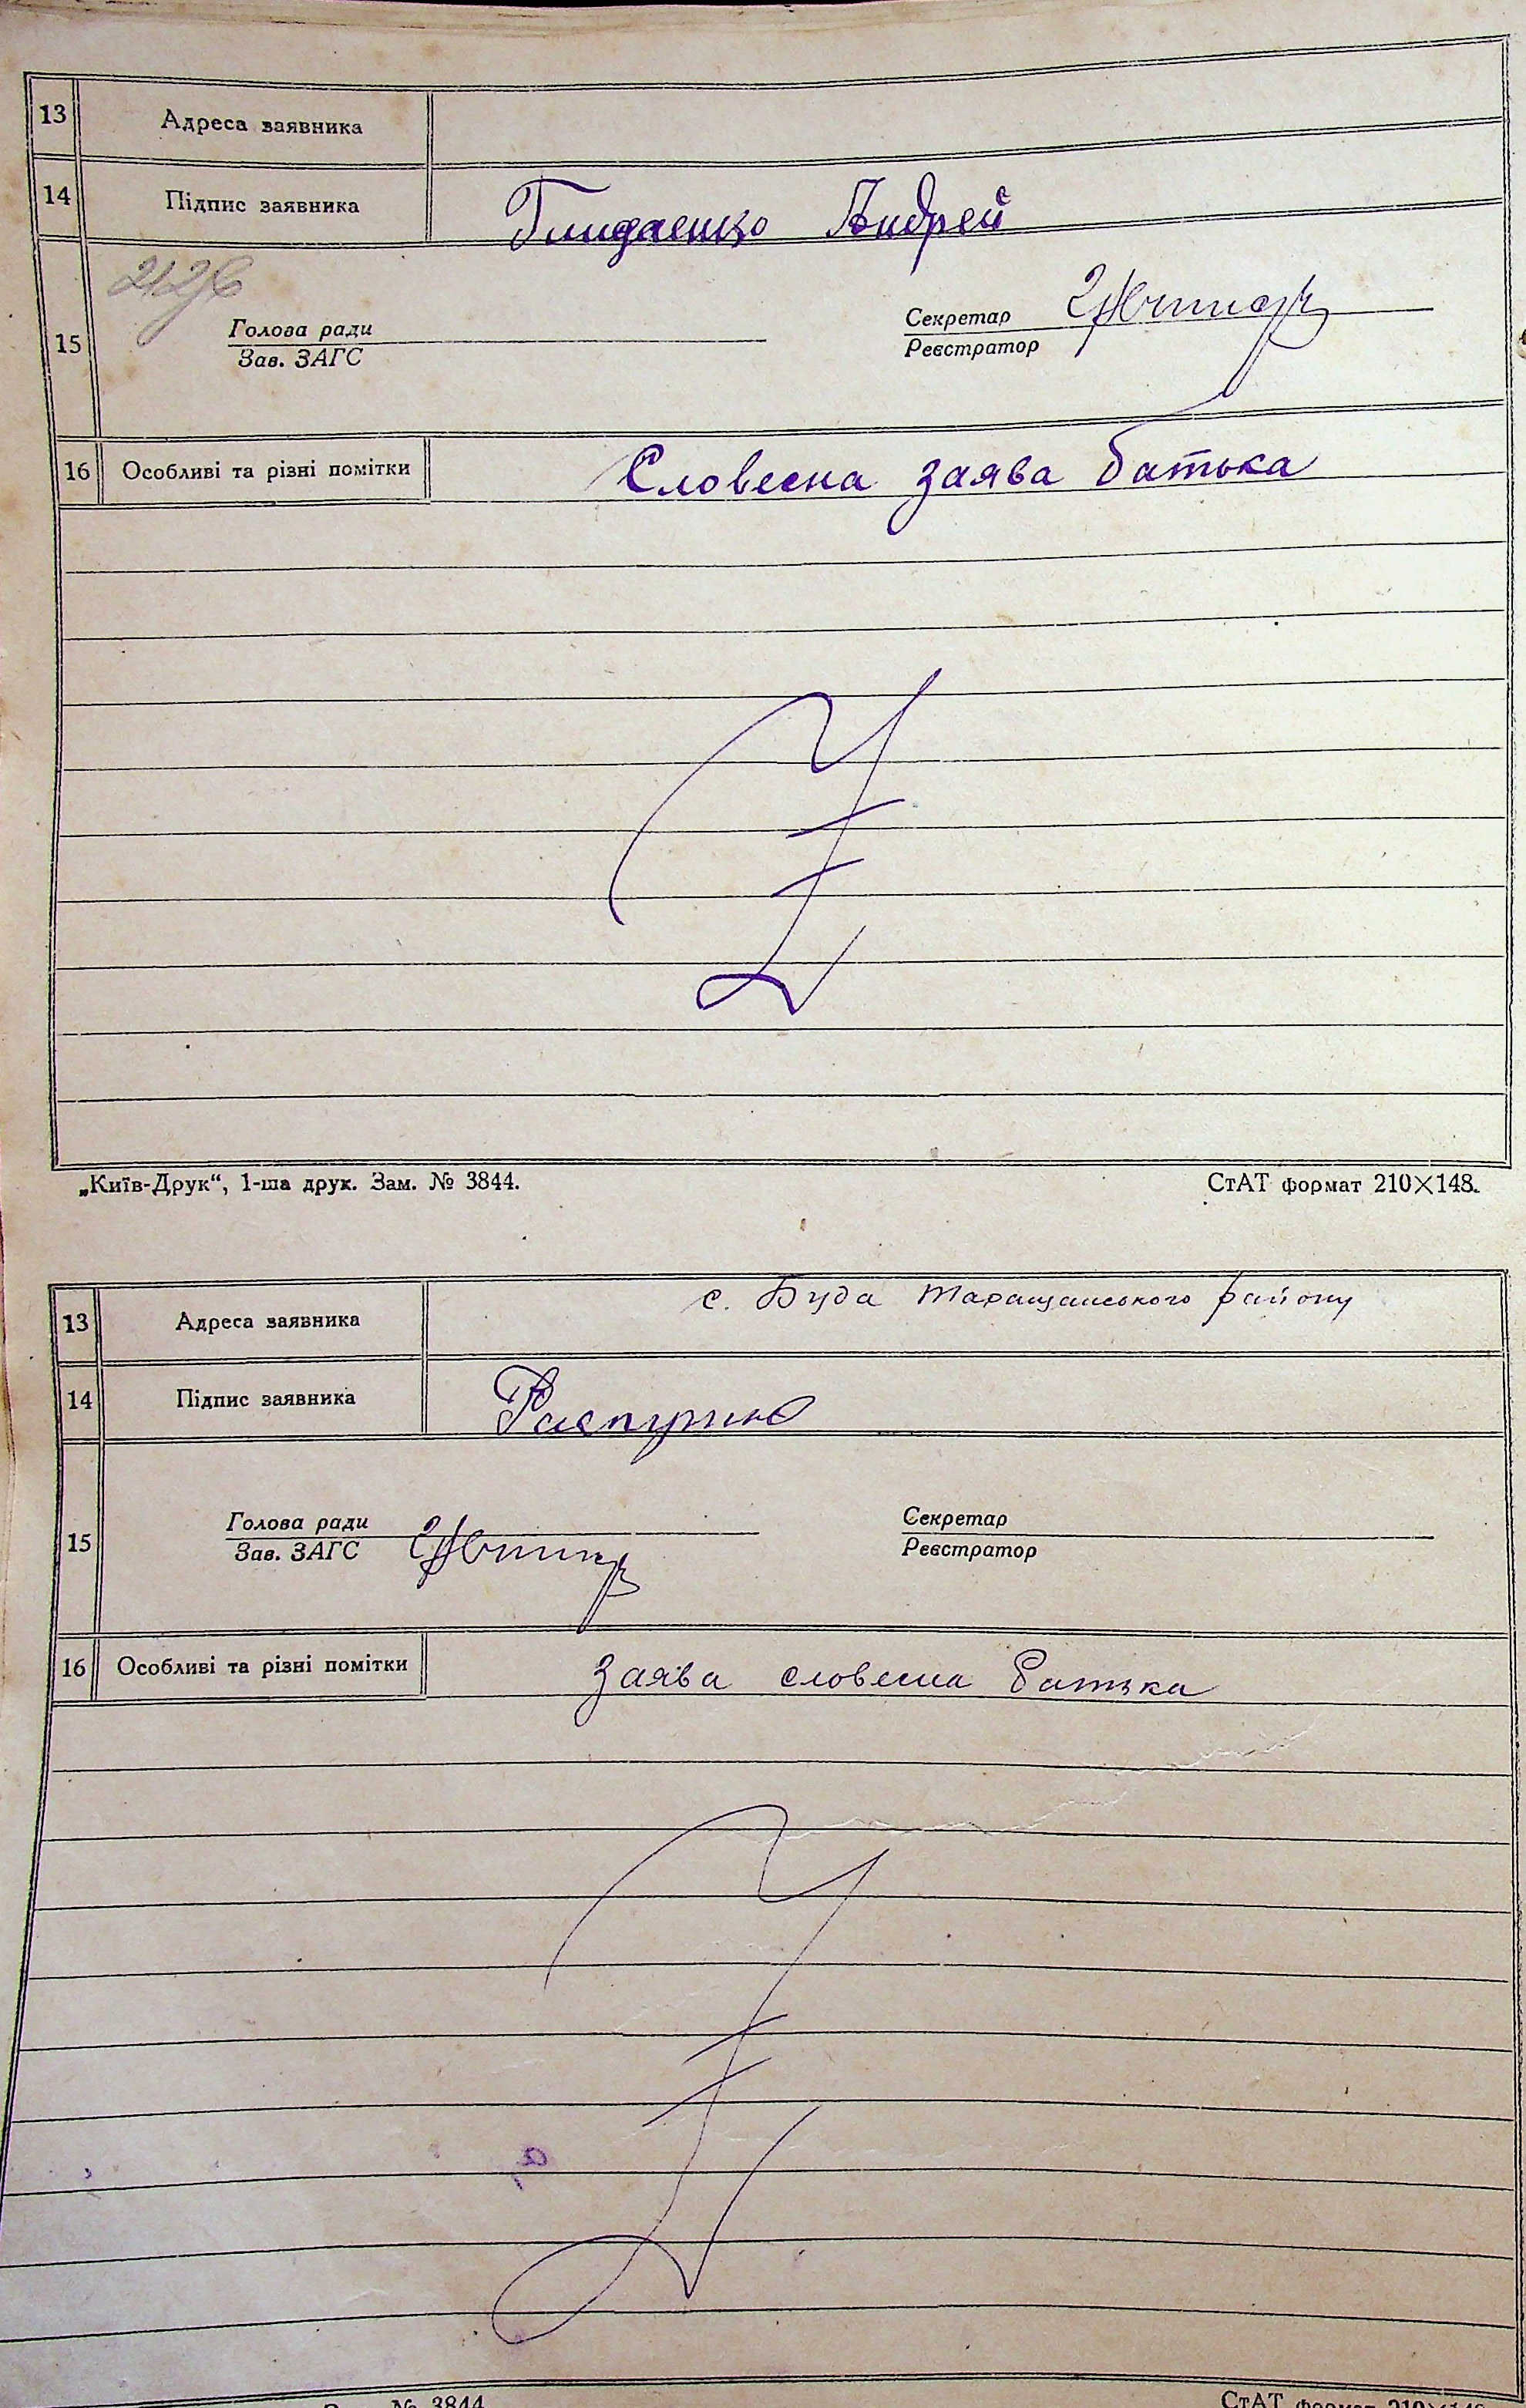 13 Адреса заявника
14 Підпис заявника Андрей
15 Голова ради Секретар
Зав. ЗАГС Реєстратор
16 Особливі та різні помітки Словесна заява батька
„Київ-Друк“, 1-ша друк. Зам. № 3844. СтАТ формат 210×148.
13 Адреса заявника с. Буда Таращанського району
14 Підпис заявника
15 Голова ради Секретар
Зав. ЗАГС Реєстратор
16 Особливі та різні помітки Заява словесна батька
№ 3844 СтАТ формат